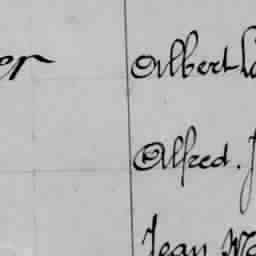 er Albert
Alfred. J
Jean